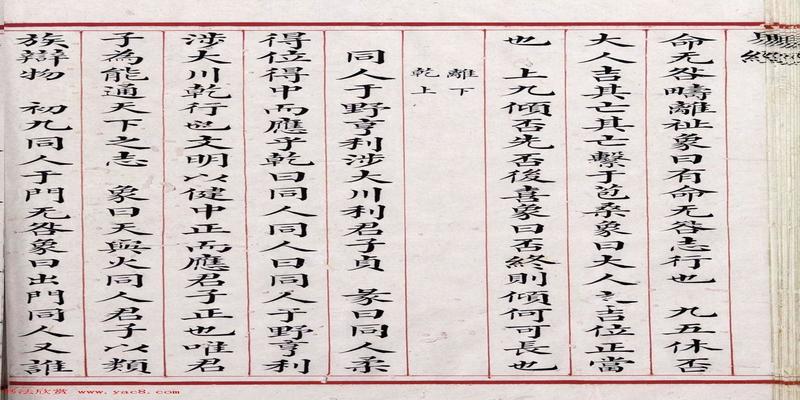 命无咎疇離祉象曰有命无咎志行也　九五休否
大人吉其亡其亡繫于苞桑象曰大人之吉位正當
也　上九傾否先否後喜象曰否終則傾何可長也
離下
乾上
同人于野亨利涉大川利君子貞　彖曰同人柔
得位得中而應乎乾曰同人同人曰同人于野亨利
涉大川乾行也文明以健中正而應君子正也唯君
子為能通天下之志　象曰天與火同人君子以類
族辯物　初九同人于門无咎象曰出門同人又誰
书法欣赏 www.yac8.com